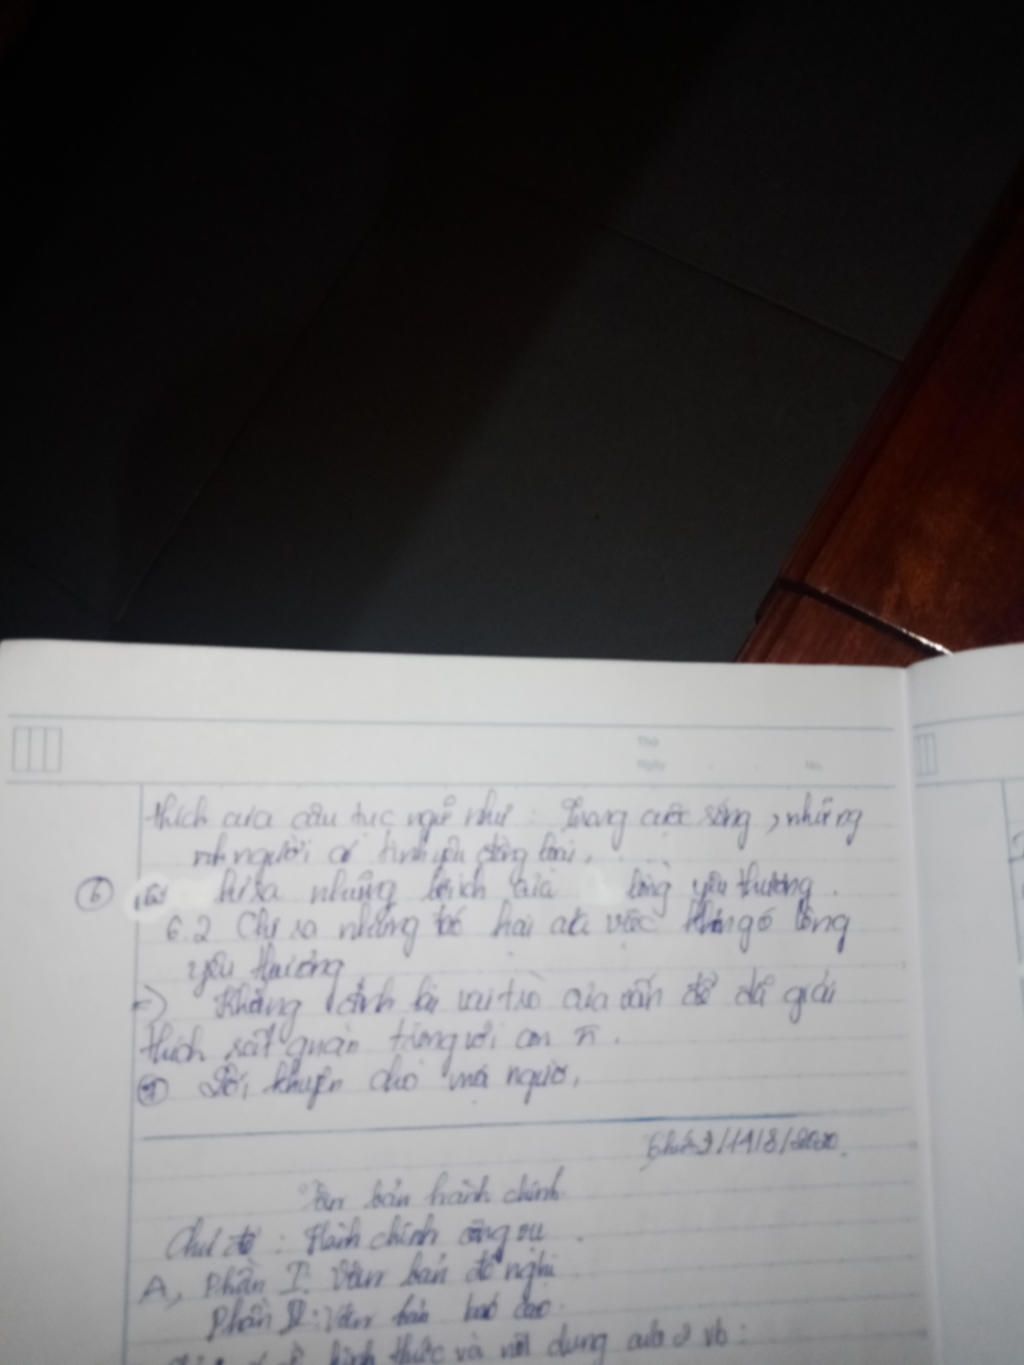 Thứ
Ngày No.
thích của câu tục ngữ như : Trong cuộc sống , những
người có tình yêu đồng loại ,
⑥ chỉ ra những lợi ích của lòng yêu thương .
6.2 Chỉ ra những tác hại của việc không có lòng
yêu thương
=> Khẳng định lại vai trò của vấn đề đã giải
thích rất quan trọng với con
⑦ Lời khuyên cho mọi người ,
/8/2020
Văn bản hành chính
Chủ đề : Hành chính công vụ .
A, Phần I: Văn bản đề nghị
Phần II: Văn bản báo cáo.
hình thức và nội dung của 2 vb :